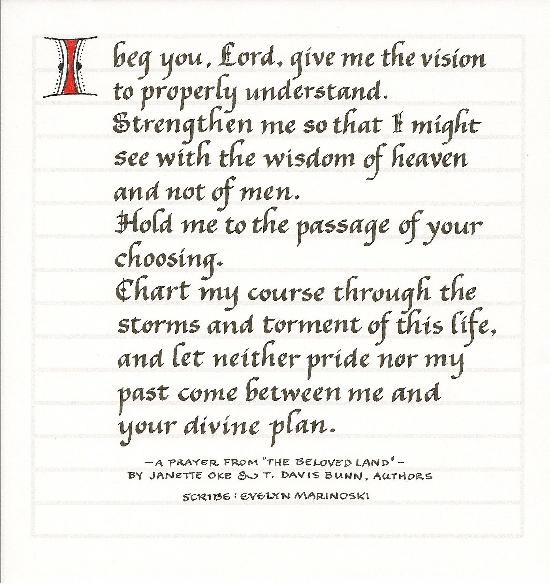 I beg you, Lord, give me the vision
to properly understand.
Strengthen me so that I might
see with the wisdom of heaven
and not of men.
Hold me to the passage of your
choosing.
Chart my course through the
storms and torment of this life,
and let neither pride nor my
past come between me and
your divine plan.
—A PRAYER FROM "THE BELOVED LAND"—
BY JANETTE OKE & T. DAVIS BUNN, AUTHORS
SCRIBE: EVELYN MARINOSKI